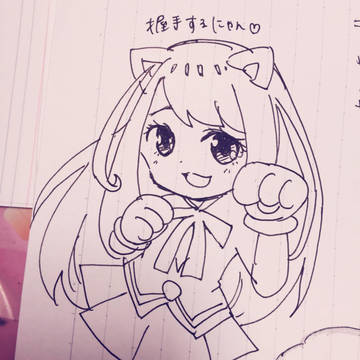 握手するにゃん♡